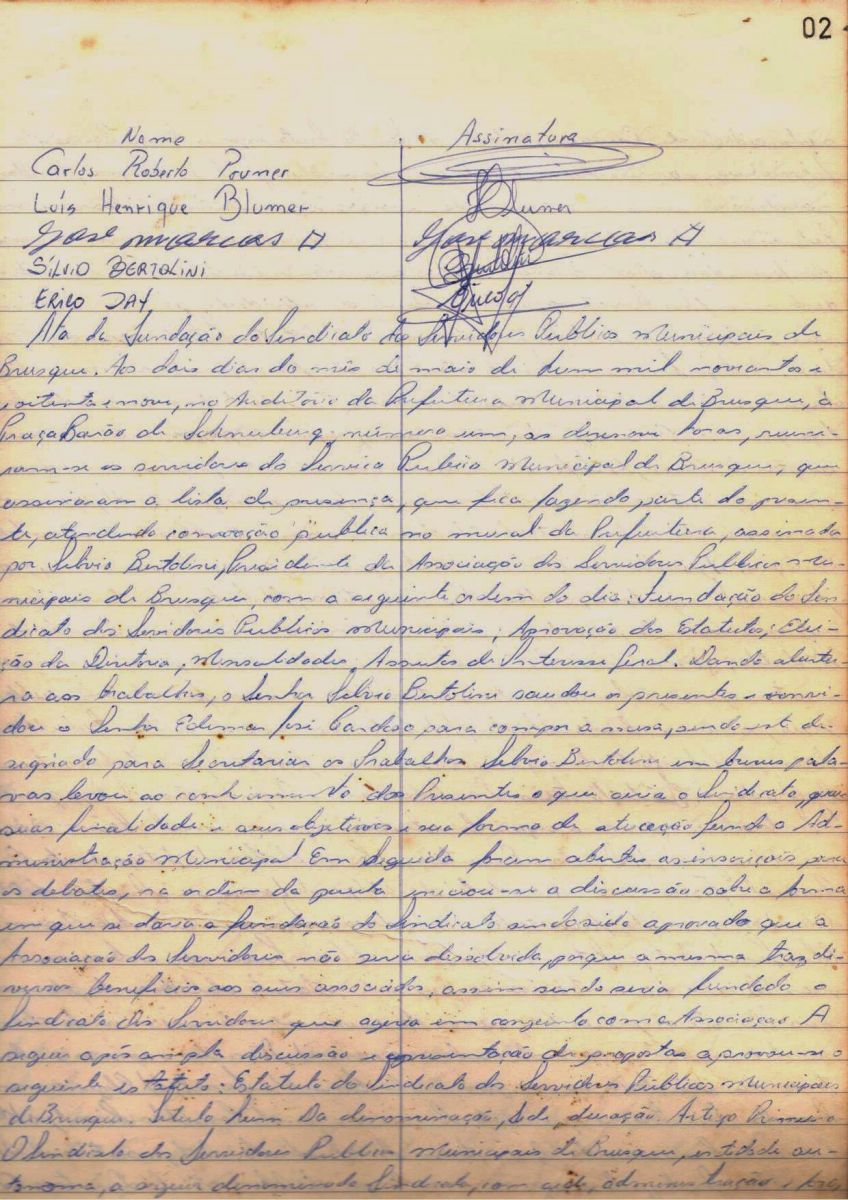 02
Nome Assinatura
Carlos Roberto Prumer
Luís Henrique Blumer Blumer
José Marcas José Marcas
SíLVIO BERTOLINI
ERICO DAY
Ata da Fundação do Sindicato dos Servidores Publicos Municipais de
Brusque. Aos dois dias do mês de maio de hum mil novecentos e
oitenta e nove, no Auditório da Prefeitura Municipal de Brusque, à
Praça Barão de Schneeburg número um, as dezenove horas, reuni-
ram-se os servidores do Serviço Publico Municipal de Brusque, que
assinaram a lista de presença, que fica fazendo parte do presen-
te, atendendo convocação pública no mural da Prefeitura, assinada
por Silvio Bertolini, Presidente da Associação dos Servidores Publicos Mu-
nicipais de Brusque, com a seguinte ordem do dia: Fundação do Sin-
dicato dos Servidores Publicos Municipais; Aprovação dos Estatutos; Elei-
ção da Diretoria; Mensalidades; Assuntos de Interesse Geral. Dando abertu-
ra aos trabalhos, o Senhor Silvio Bertolini saudou os presentes e convi-
dou o Senhor Edemar José Cardoso para compor a mesa, sendo este de-
signado para Secretariar os Trabalhos. Silvio Bertolini em breves pala-
vras levou ao conhecimento dos Presentes o que seria o Sindicato, quais
suas finalidade e seus objetivos e sua forma de atuação frente a Ad-
ministração Municipal. Em Seguida foram abertas as inscrições para
os debates, na ordem da pauta iniciou-se a discussão sobre a forma
em que se daria a fundação do Sindicato sendo sido aprovado que a
Associação dos Servidores não seria dissolvida, porque a mesma traz di-
versos beneficios aos seus associados, assim sendo seria fundado o
Sindicato dos Servidores que agiria em conjunto com a Associação. A
seguir após ampla discussão e apresentação de propostas aprovou-se o
seguinte estatuto: Estatuto do Sindicato dos Servidores Públicos Municipais
de Brusque. Titulo hum Da denominação, Sede, duração. Artigo Primeiro
O Sindicato dos Servidores Publicos Municipais de Brusque, entidade au-
tonoma, a seguir denominado Sindicato, com sede, administração e